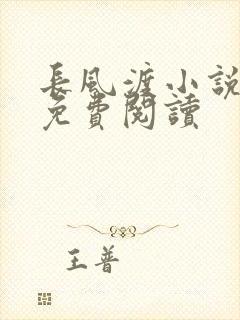 長風渡小說
免費閱讀
王普